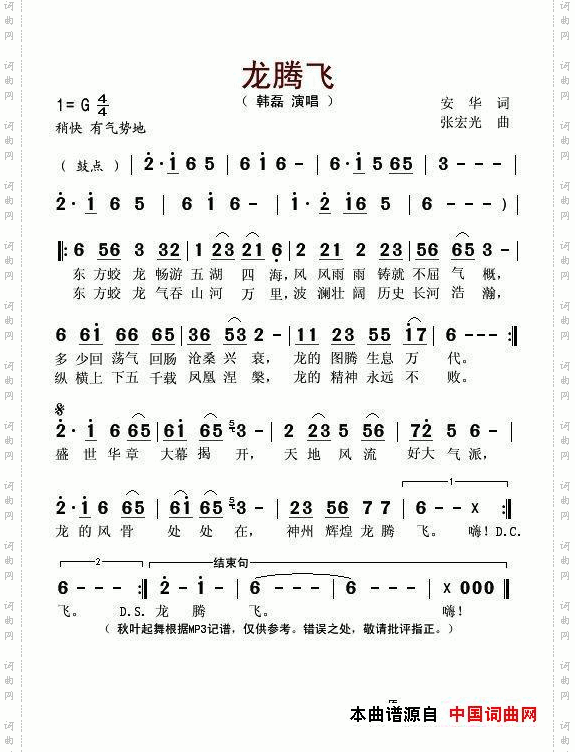 龙腾飞
（ 韩磊 演唱 ）
1= G 4/4
安 华 词
稍快 有气势地
张宏光 曲
（ 鼓点 ） | 2· 1 6 5 | 6 1 6 - | 6· 1 5 65 | 3 - - - |
2· 1 6 5 | 6 1 6 - | 1· 2 16 5 | 6 - - - ) |
‖: 6 56 3 32 | 1 23 21 6 | 2 23 5 3 | 2 56 65 3 | 5 - - - |
东 方蛟 龙 畅游 五 湖 四 海, 风 风雨 雨 铸就 不屈 气 概,
东 方蛟 龙 气吞 山 河 万 里, 波 澜壮 阔 历史 长河 浩 瀚,
6 61 66 66 | 56 36 53 | 2 - - - | 11 23 22 55 17 | 6 - - - :‖
多 少回 荡气 回肠 沧桑 兴 衰, 龙的 图腾 生息 万 代。
纵 横上 下五 千载 凤凰 涅 槃, 龙的 精神 永远 不 败。
2· 1 6 65 | 61 65 3 - | 2 23 5 56 | 72 5 6 - |
盛 世 华 章 大幕 揭 开, 天 地 风 流 好大 气 派,
2· 1 6 65 | 61 65 3 - - - | 23 56 7 7 | 6 - - X :‖
1
龙 的 风 骨 处 处 在, 神州 辉煌 龙 腾 飞。 嗨! D.C.
2
结束句
6 - - - :‖ 2 - 1 - | 6 - - - | 6 - - - | X 000 ‖
飞。 D.S. 龙 腾 飞。 嗨!
（ 秋叶起舞根据MP3记谱，仅供参考。错误之处，敬请批评指正。）
本曲谱源自 中国词曲网
词曲网